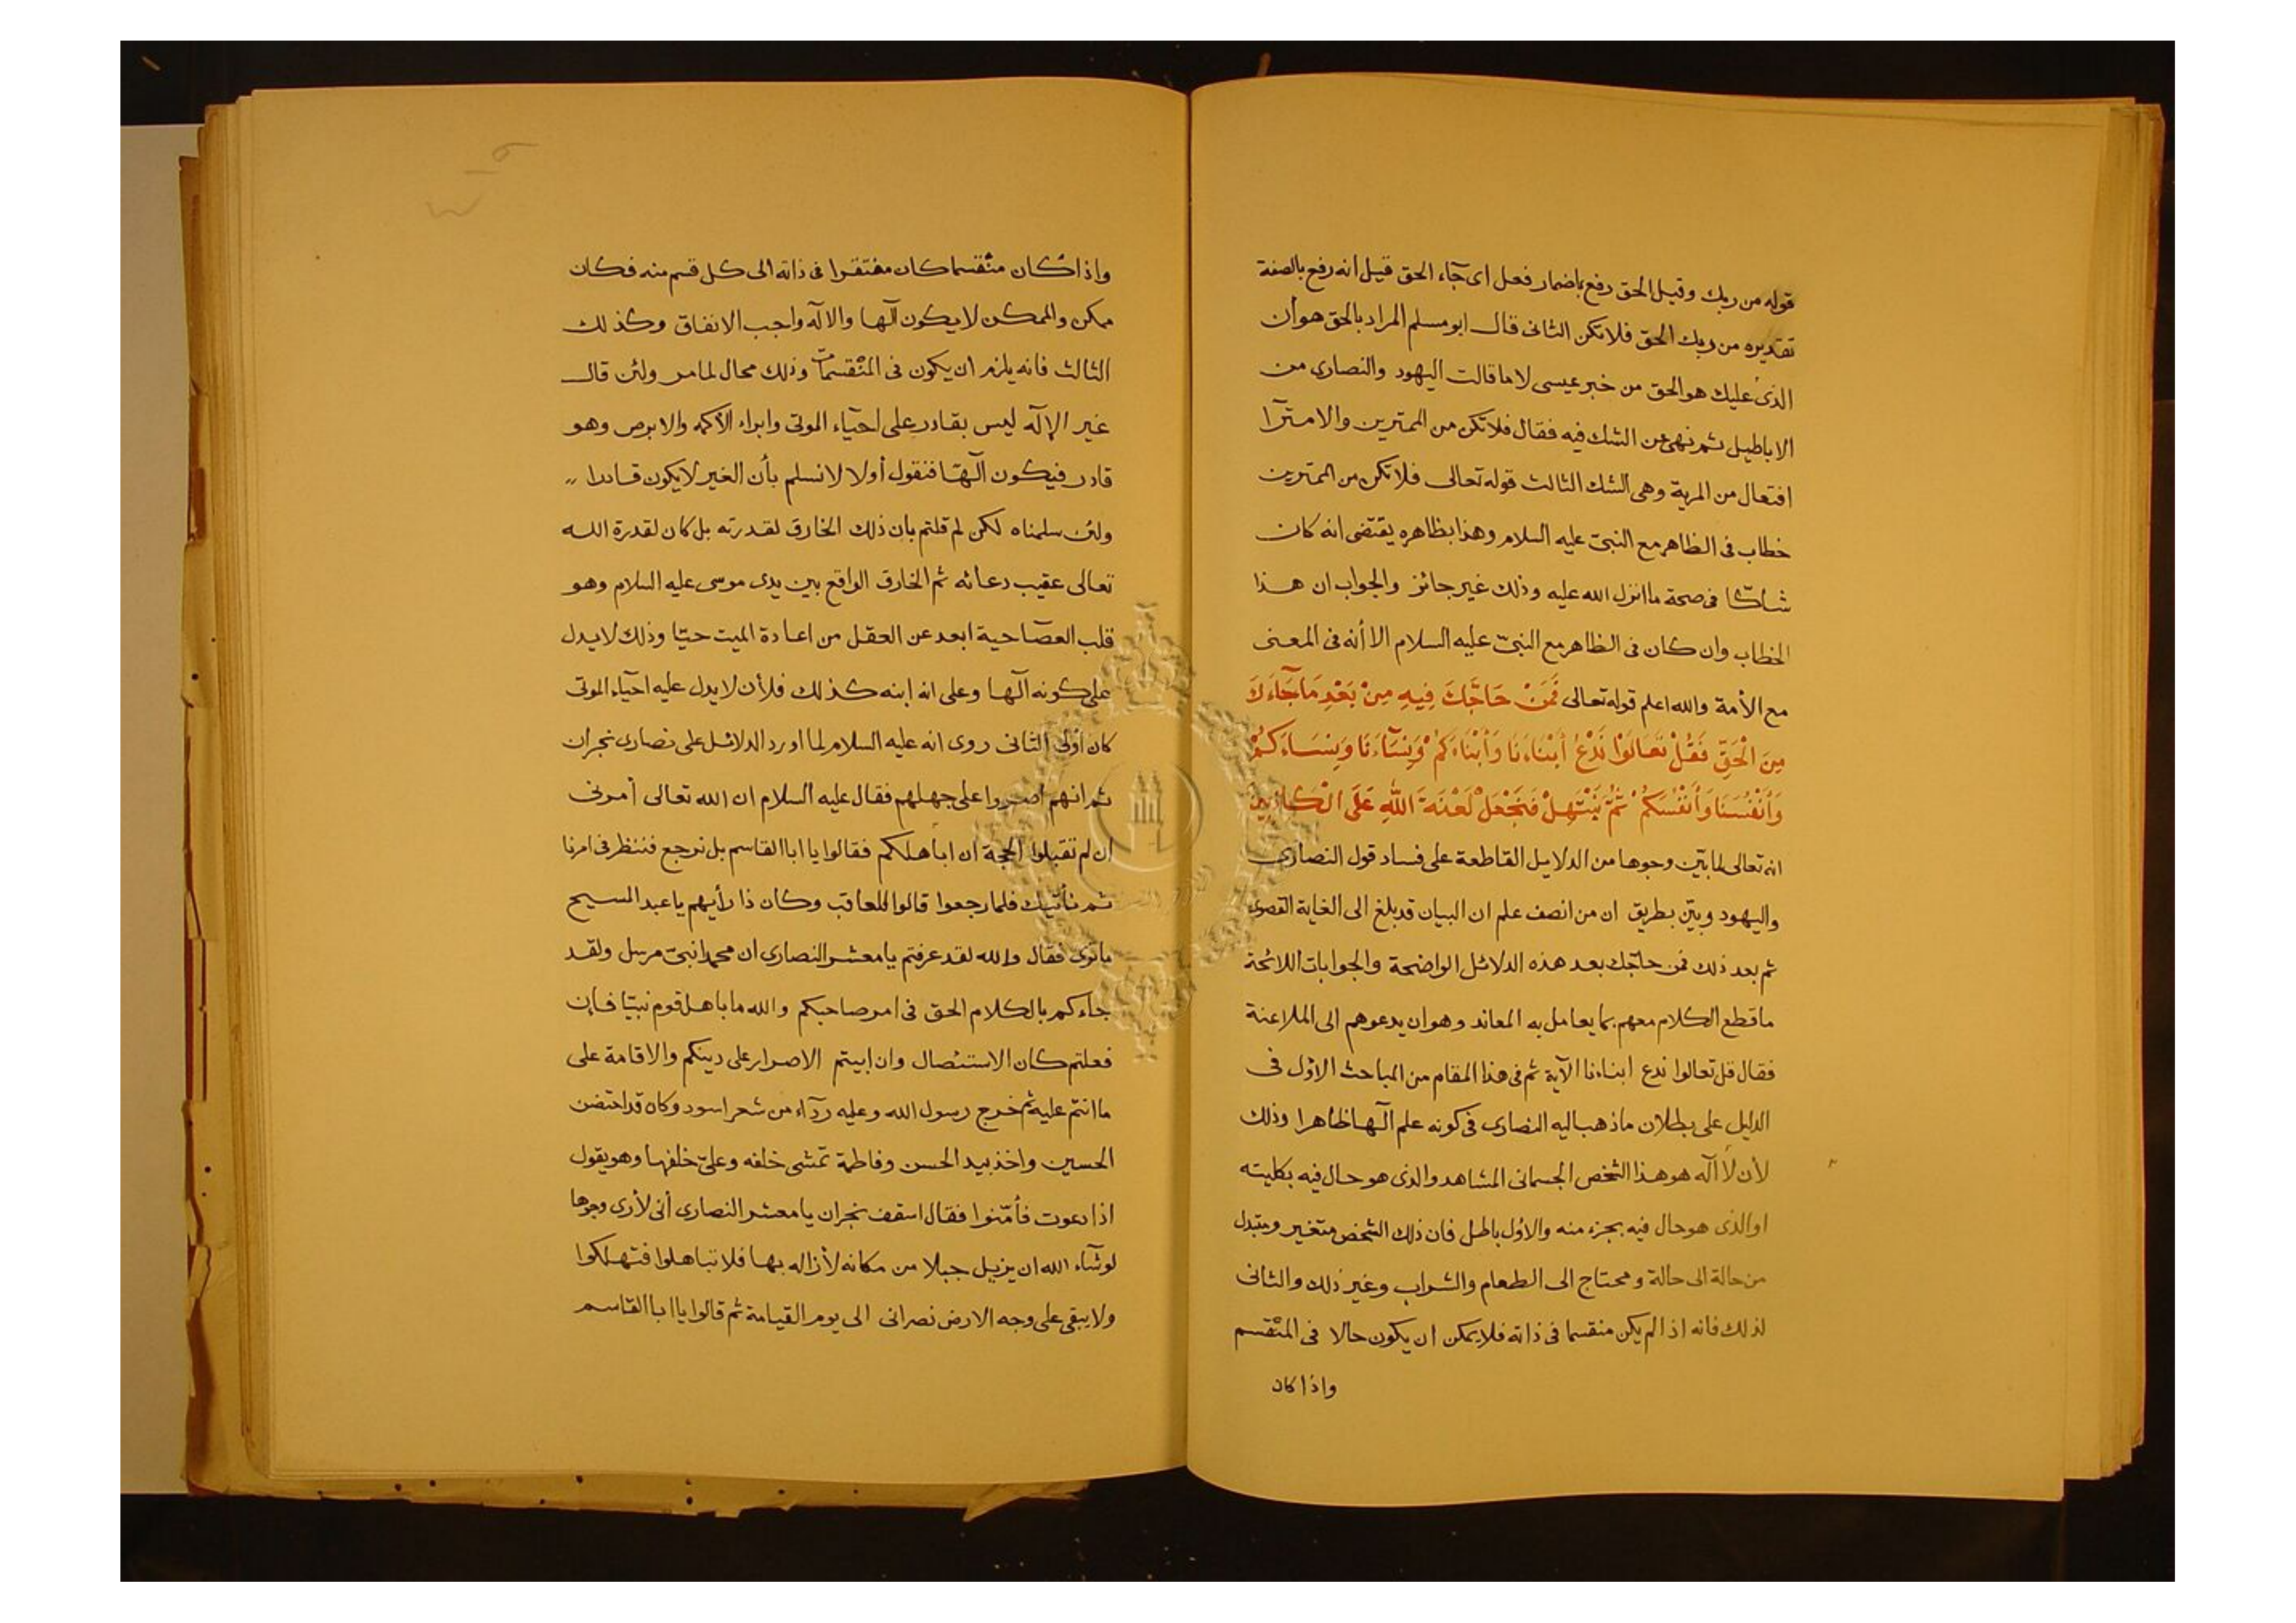 قوله من ربك وقيل الحق رفع باضمار فعل اى جآء الحق قيل انه رفع بالصفة
تقديره من ربك الحق فلا تكن الثانى قال ابو مسلم المراد بالحق هو أن
الذى عليك هو الحق من خبر عيسى لا ما قالت اليهود والنصارى من
الاباطيل ثم نهى عن الشك فيه فقال فلا تكن من الممترين والامترآ
افتعال من المرية وهى الشك الثالث قوله تعالى فلا تكن من الممترين
خطاب فى الظاهر مع النبىّ عليه السلام وهذا بظاهره يقتضى انه كان
شاكّا فى صحة ما انزل الله عليه وذلك غير جائز والجواب ان هذا
الخطاب وان كان فى الظاهر مع النبىّ عليه السلام الا أنه فى المعنى
مع الأمة والله اعلم قوله تعالى فَمَنْ حَاجَّكَ فِيهِ مِنْ بَعْدِ مَا جَآءَكَ
مِنَ الْحَقِّ فَقُلْ تَعَالَوْا نَدْعُ أَبْنَاءَنَا وَأَبْنَاءَكُمْ وَنِسَآءَنَا وَنِسَاءَكُمْ
وَأَنْفُسَنَا وَأَنْفُسَكُمْ ثُمَّ نَبْتَهِلْ فَنَجْعَلْ لَعْنَةَ اللهِ عَلَى الْكَاذِبِينَ
انه تعالى لما بيّن وجوها من الدلايل القاطعة على فساد قول النصارى
واليهود وبيّن بطريق ان من انصف علم ان البيان قد بلغ الى الغاية القصوى
ثم بعد ذلك فمن حاجّك بعد هذه الدلائل الواضحة والجوابات اللائحة
ما قطع الكلام معهم بما يعامل به المعاند وهو ان يدعوهم الى الملاعنة
فقال قل تعالوا ندع ابناءنا الآية ثم فى هذا المقام من المباحث الاوّل فى
الدليل على بطلان ما ذهب اليه النصارى فى كونه علم آلها ظاهرا وذلك
لأن لا آله هو هذا الشخص الجسمانى المشاهد والذى هو حال فيه بكليته
او الذى هو حال فيه بجزء منه والاوّل باطل فان ذلك الشخص متغير ويتبدل
من حالة الى حالة ومحتاج الى الطعام والشراب وغير ذلك والثانى
لذلك فانه اذا لم يكن منقسما فى ذاته فلا يمكن ان يكون حالا فى المنقسم
واذا كان
واذا كان منقسما كان مفتقرا فى ذاته الى كل قسم منه فكان
ممكن والممكن لا يكون آلها والاله واجب الانفاق وكذلك
الثالث فانه يلزم ان يكون فى المنقسمات وذلك محال لما مر ولئن قال
غير الإله ليس بقادر على احيآء الموتى وابراء الأكمه والابرص وهو
قادر فيكون آلها فنقول أولا لا نسلم بأن الغير لا يكون قادرا
ولئن سلمناه لكن لم قلتم بان ذلك الخارق لقدرته بل كان لقدرة الله
تعالى عقيب دعائه ثم الخارق الواقع بين يدى موسى عليه السلام وهو
قلب العصا حية ابعد عن العقل من اعادة الميت حيّا وذلك لا يدل
على كونه آلها وعلى انه ابنه كذلك فلأن لا يدل عليه احيآء الموتى
كان أولى الثانى روى انه عليه السلام لما اورد الدلائل على نصارى نجران
ثم انهم اصروا على جهلهم فقال عليه السلام ان الله تعالى أمرنى
ان لم تقبلوا الحجة ان اباهلكم فقالوا يا ابا القاسم بل نرجع فننظر فى امرنا
ثم نأتيك فلما رجعوا قالوا للعاقب وكان ذا رأيهم يا عبد المسيح
ما ترى فقال والله لقد عرفتم يا معشر النصارى ان محمدا نبىّ مرسل ولقد
جاءكم بالكلام الحق فى امر صاحبكم والله ما باهل قوم نبيّا فإن
فعلتم كان الاستئصال وان ابيتم الاصرار على دينكم والاقامة على
ما انتم عليه ثم خرج رسول الله وعليه ردآء من شعر اسود وكان قد احتضن
الحسين واخذ بيد الحسن وفاطمة تمشى خلفه وعلىّ خلفها وهو يقول
اذا دعوت فأمّنوا فقال اسقف نجران يا معشر النصارى أنى لأرى وجوها
لو شآء الله ان يزيل جبلا من مكانه لأزاله بها فلا تباهلوا فتهلكوا
ولا يبقى على وجه الارض نصرانى الى يوم القيامة ثم قالوا يا ابا القاسم